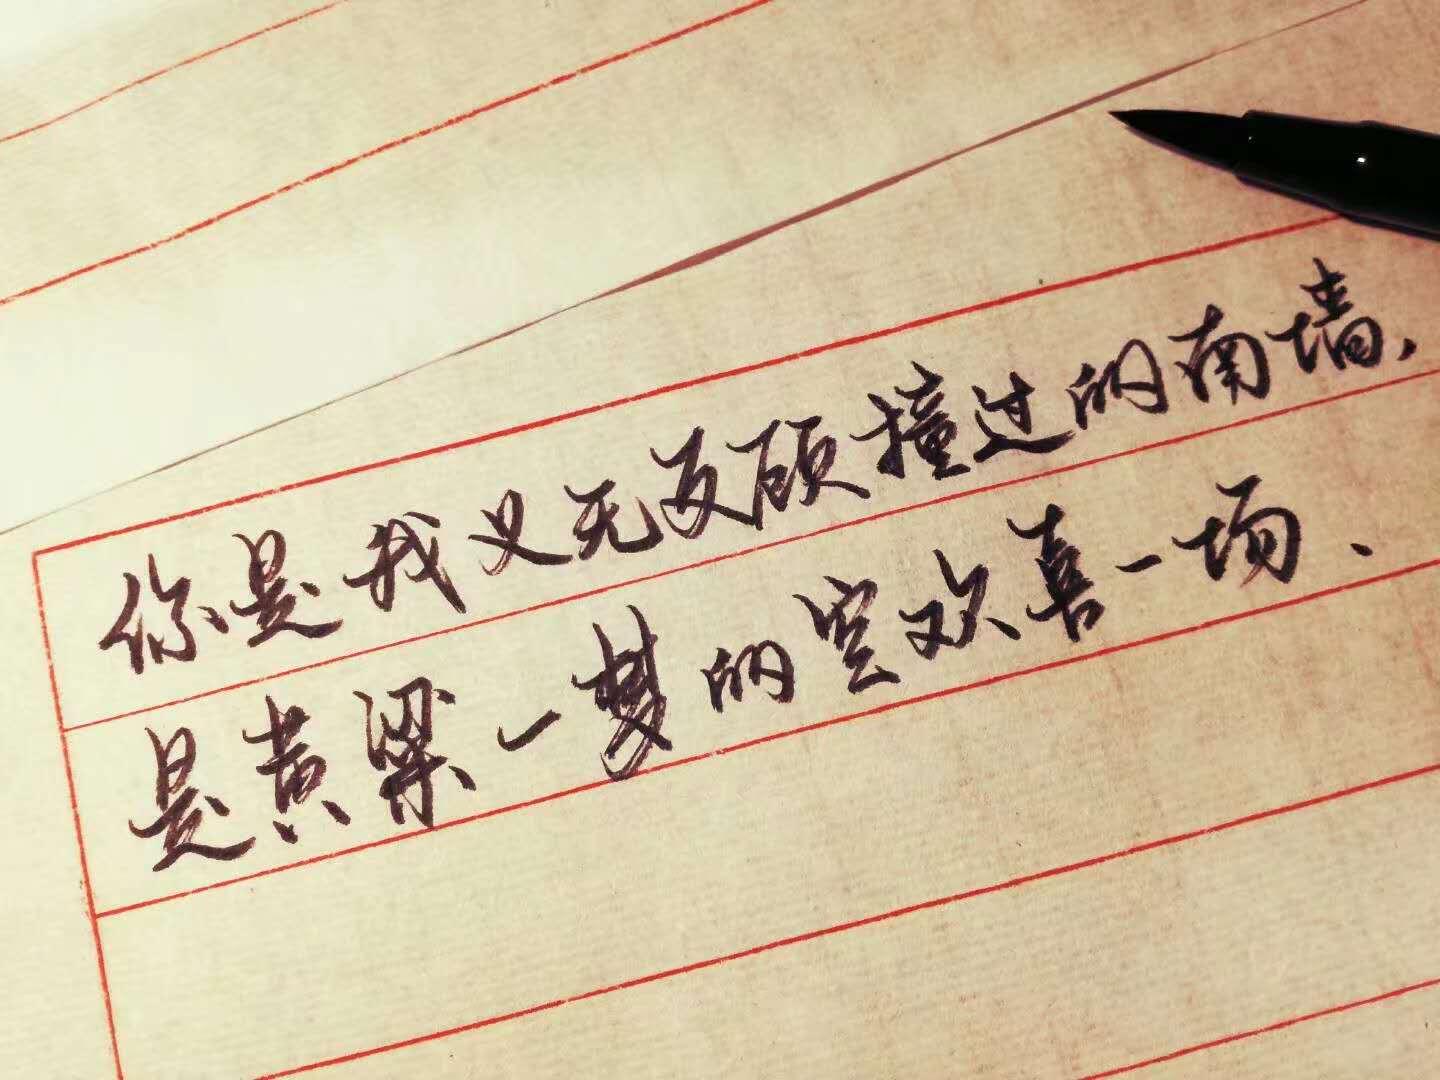 你是我义无反顾撞过的南墙，
是黄粱一梦的空欢喜一场、